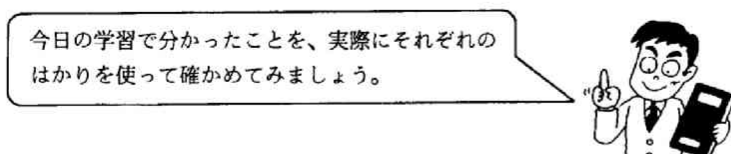 今日の学習で分かったことを、実際にそれぞれの
はかりを使って確かめてみましょう。